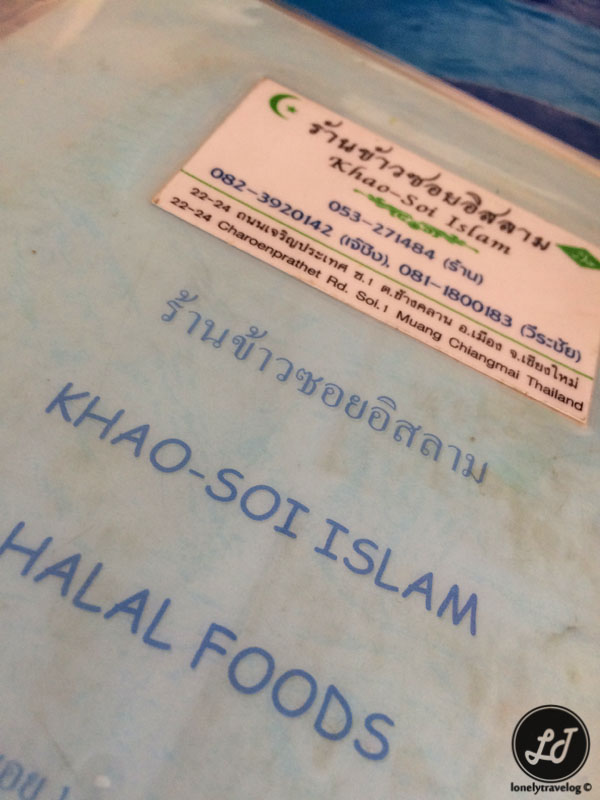 ร้านข้าวซอยอิสลาม
Khao-Soi Islam
053-271484 (ร้าน)
082-3920142 (เจ๊ชิง), 081-1800183 (วีระชัย)
22-24 ถนนเจริญประเทศ ซ.1 ต.ช้างคลาน อ.เมือง จ.เชียงใหม่
22-24 Charoenprathet Rd. Soi.1 Muang Chiangmai Thailand
ร้านข้าวซอยอิสลาม
KHAO-SOI ISLAM
HALAL FOODS
LJ
lonelytravelog ©